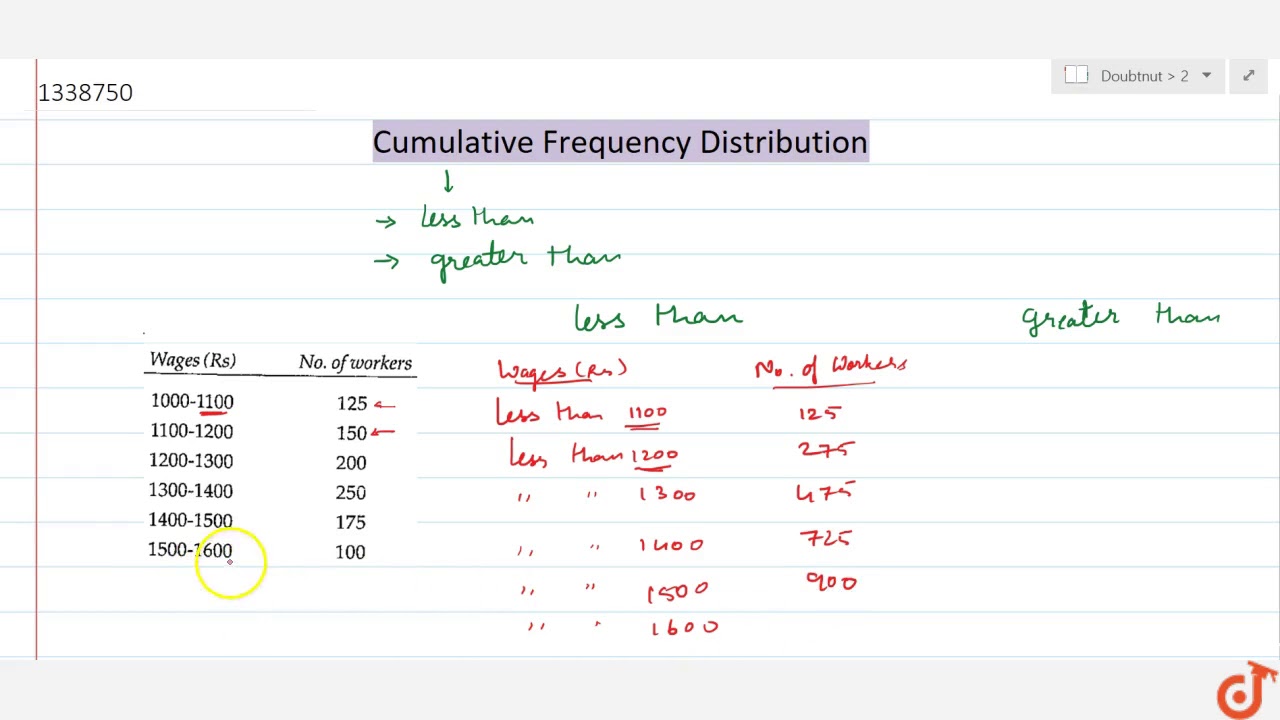 Doubtnut > 2
1338750
Cumulative Frequency Distribution
↓
→ less than
→ greater than
less than greater than
Wages (Rs) No. of workers
1000-1100 125 ←
1100-1200 150 ←
1200-1300 200
1300-1400 250
1400-1500 175
1500-1600 100
Wages (Rs) No. of Workers
less than 1100 125
less than 1200 275
,, ,, 1300 475
,, ,, 1400 725
,, ,, 1500 900
,, ,, 1600